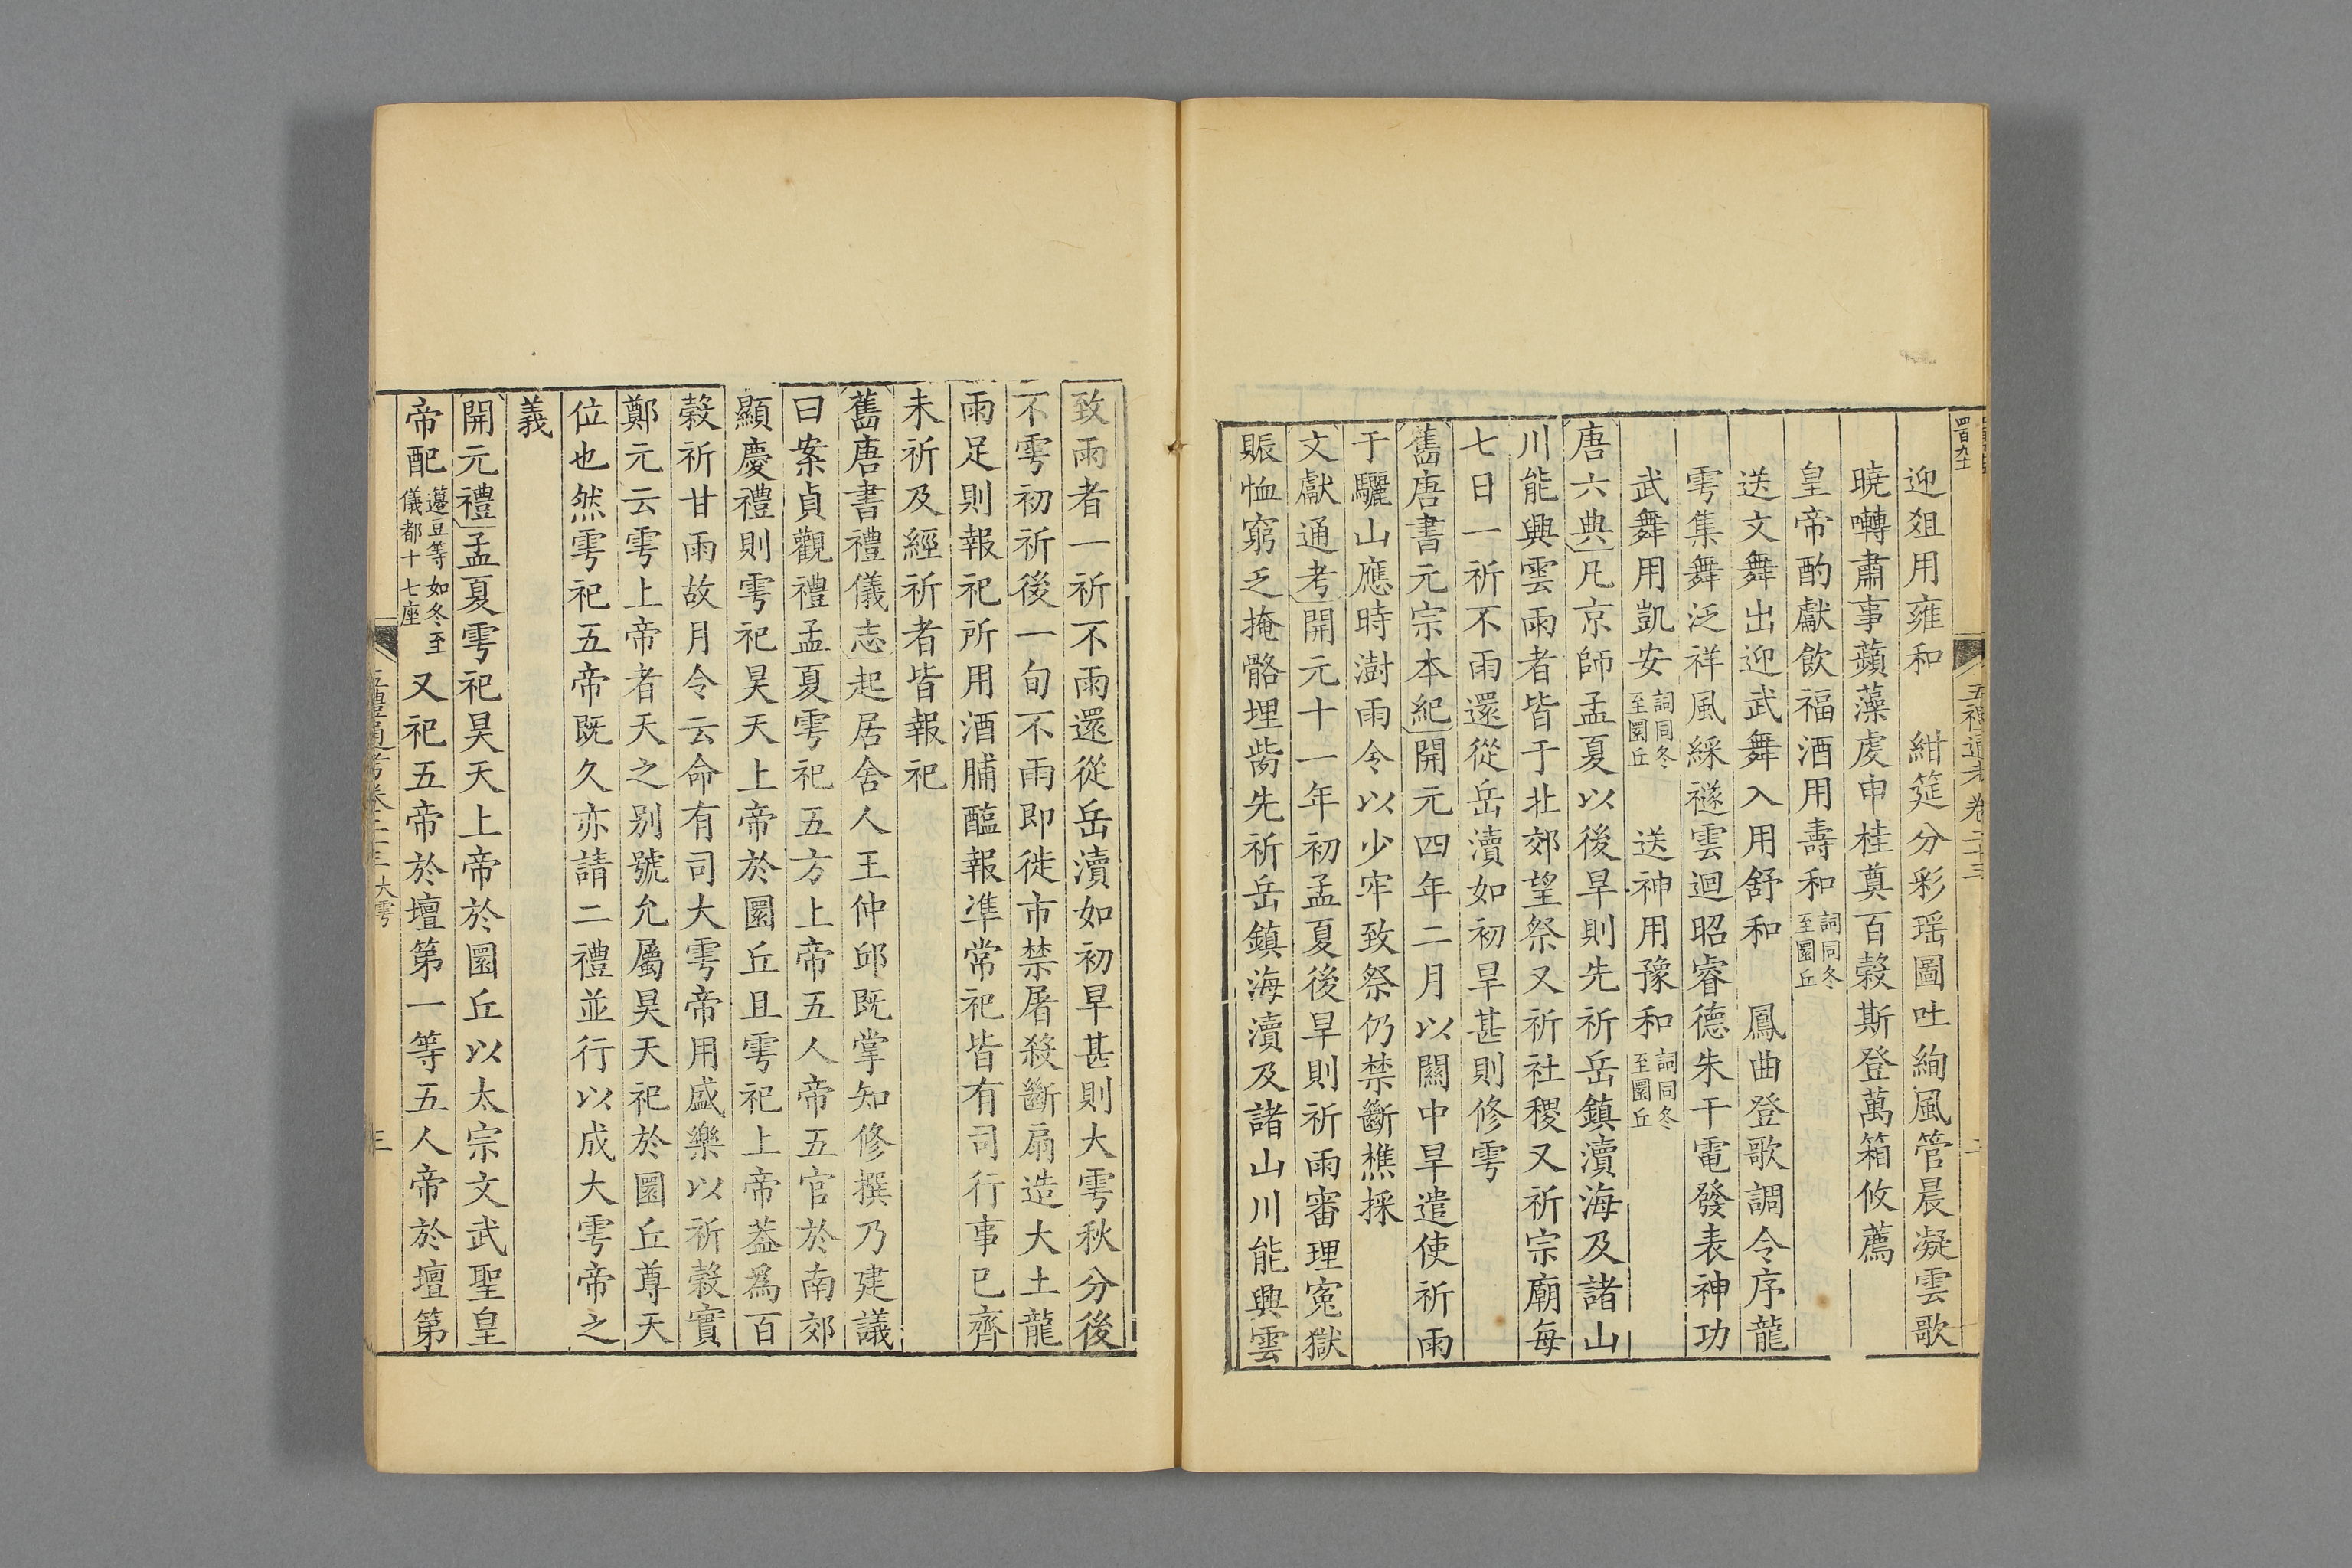 五禮通考卷二十三
迎俎用雍和　紺筵分彩瑶圖吐絢風管晨凝雲歌
曉囀肅事蘋藻虔申桂奠百榖斯登萬箱攸薦
皇帝酌獻飲福酒用壽和詞同冬至圜丘
送文舞出迎武舞入用舒和　鳳曲登歌調令序龍
雩集舞泛祥風綵襚雲迴昭睿德朱干電發表神功
武舞用凱安詞同冬至圜丘　送神用豫和詞同冬至圜丘
唐六典凡京師孟夏以後旱則先祈岳鎮瀆海及諸山
川能興雲雨者皆于北郊望祭又祈社稷又祈宗廟每
七日一祈不雨還從岳瀆如初旱甚則修雩
舊唐書元宗本紀開元四年二月以關中旱遣使祈雨
于驪山應時澍雨令以少牢致祭仍禁斷樵採
文獻通考開元十一年初孟夏後旱則祈雨審理寃獄
賑恤窮乏掩骼埋胔先祈岳鎮海瀆及諸山川能興雲
致雨者一祈不雨還從岳瀆如初旱甚則大雩秋分後
不雩初祈後一旬不雨即徙市禁屠殺斷扇造大土龍
雨足則報祀所用酒脯醢報準常祀皆有司行事已齊
未祈及經祈者皆報祀
舊唐書禮儀志起居舍人王仲邱既掌知修撰乃建議
曰案貞觀禮孟夏雩祀五方上帝五人帝五官於南郊
顯慶禮則雩祀昊天上帝於圜丘且雩祀上帝葢爲百
榖祈甘雨故月令云命有司大雩帝用盛樂以祈榖實
鄭元云雩上帝者天之别號允屬昊天祀於圜丘尊天
位也然雩祀五帝既久亦請二禮並行以成大雩帝之
義
開元禮孟夏雩祀昊天上帝於圜丘以太宗文武聖皇
帝配籩豆等如冬至儀都十七座又祀五帝於壇第一等五人帝於壇第
大雩　三